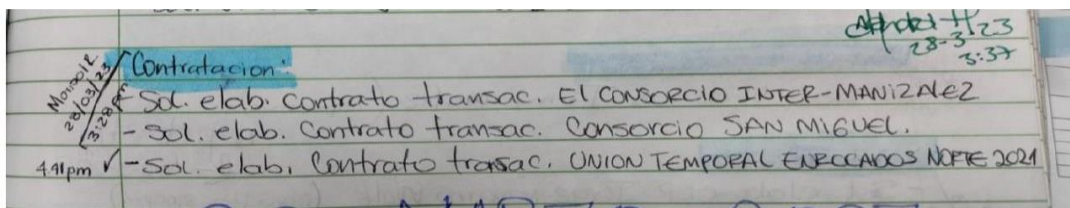 28-3-23
3:37
28/03/23
3:28 pm
Contratacion:
- Sol. elab. Contrato transac. El CONSORCIO INTER-MANIZALEZ
- Sol. elab. Contrato transac. Consorcio SAN MIGUEL.
4:41pm ✓ - Sol. elab. Contrato transac. UNION TEMPORAL ENROCADOS NORTE 2021